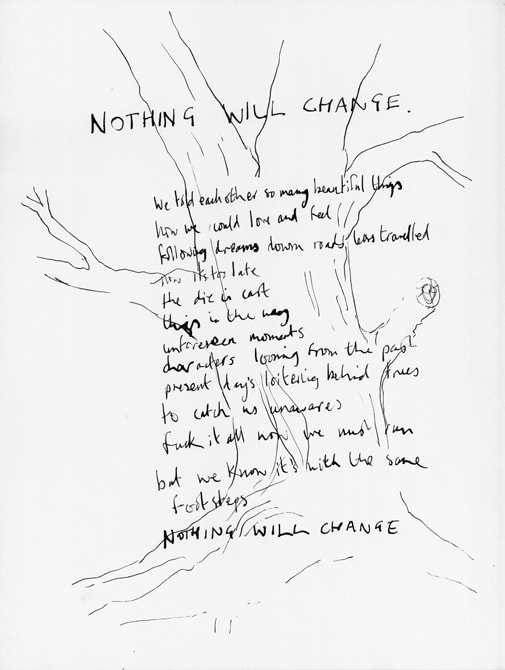 NOTHING WILL CHANGE.
we told each other so many beautiful things
how we could love and feel
following dreams down roads less travelled
now its too late
the die is cast
things in the way
unforeseen moments
characters looming from the past
present day's loitering behind trees
to catch us unawares
fuck it all now we must run
but we know it's with the same
footsteps
NOTHING WILL CHANGE